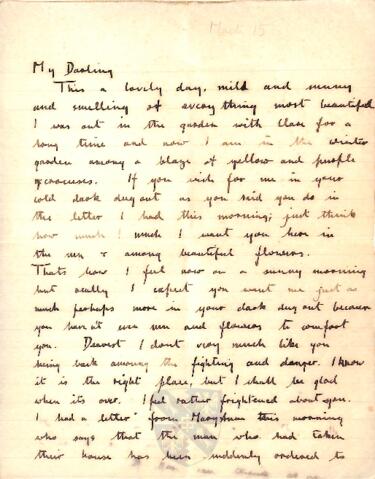 March 15
My Darling
This a lovely day, mild and sunny
and smelling of everything most beautiful
I was out in the garden with Clare for a
long time and now I am in the winter
garden among a blaze of yellow and purple
crocuses. If you wish for me in your
cold dark dug out as you said you do in
the letter I had this morning; just think
how much I want you here in
the sun & among beautiful flowers.
Thats how I feel now on a sunny morning
but really I expect you want me just as
much perhaps more in your dark dug out because
you haven't even sun and flowers to comfort
you. Dearest I dont very much like you
being back among the fighting and danger. I know
it is the right place, but I shall be glad
when its over. I feel rather frightened about you.
I had a letter from this morning
who says that the man who had taken
their house has been suddenly ordered to